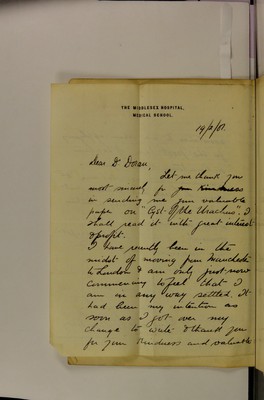 THE MIDDLESEX HOSPITAL,
MEDICAL SCHOOL.
19/2/01.
Dear Dr Doran,
Let me thank you
most sincerely for your kindness
in sending me your valuable
paper on "Cyst of the Urachus". I
shall read it with great interest
& profit.
I have recently been in the
midst of moving from Manchester
to London & am only just now
commencing to feel that I
am in any way settled. It
had been my intention as
soon as I got over my
change to write & thank you
for your kindness and valuable